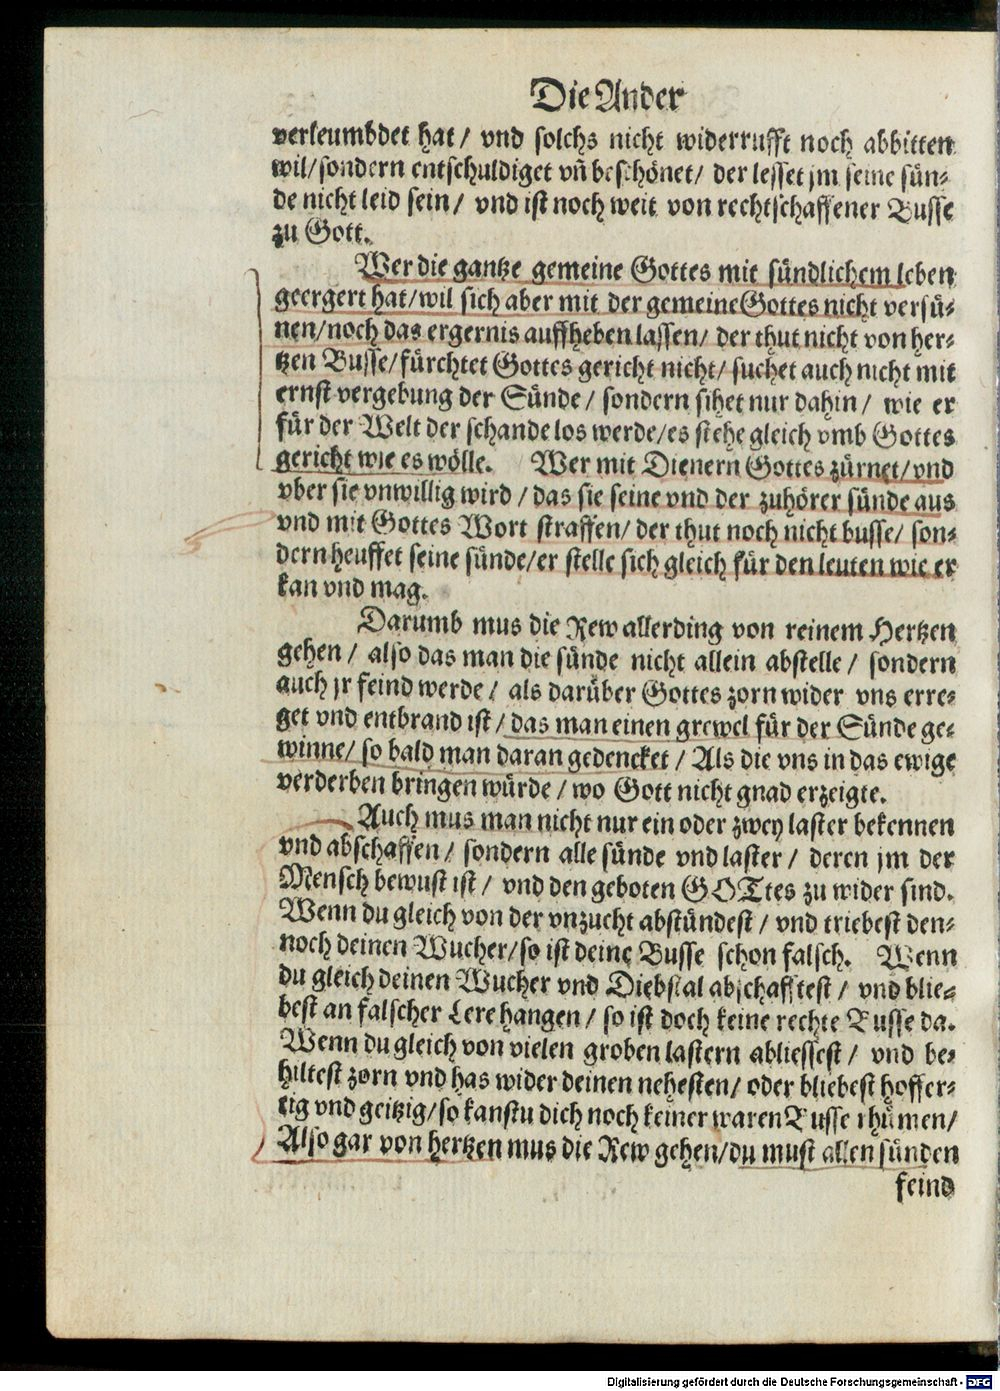 Die Ander
verleumbdet hat / vnd solchs nicht widerrufft noch abbitten
wil/sondern entschuldiget vñ beschönet/ der lesset jm seine sün-
de nicht leid sein / vnd ist noch weit von rechtschaffener Busse
zu Gott.
Wer die gantze gemeine Gottes mit sündlichem leben
geergert hat/wil sich aber mit der gemeine Gottes nicht versü-
nen/noch das ergernis auffheben lassen/ der thut nicht von her-
tzen Busse/fürchtet Gottes gericht nicht/ suchet auch nicht mit
ernst vergebung der Sünde / sondern sihet nur dahin / wie er
für der Welt der schande los werde/es stehe gleich vmb Gottes
gericht wie es wölle. Wer mit Dienern Gottes zürnet/vnd
vber sie vnwillig wird / das sie seine vnd der zuhörer sünde aus
vnd mit Gottes Wort straffen/ der thut noch nicht busse/ son-
dern heuffet seine sünde/er stelle sich gleich für den leuten wie er
kan vnd mag.
Darumb mus die Rew allerding von reinem Hertzen
gehen / also das man die sünde nicht allein abstelle / sondern
auch jr feind werde / als darüber Gottes zorn wider vns erre-
get vnd entbrand ist / das man einen grewel für der Sünde ge-
winne/ so bald man daran gedencket / Als die vns in das ewige
verderben bringen würde / wo Gott nicht gnad erzeigte.
Auch mus man nicht nur ein oder zwey laster bekennen
vnd abschaffen / sondern alle sünde vnd laster / deren jm der
Mensch bewust ist / vnd den geboten GOTtes zu wider sind.
Wenn du gleich von der vnzucht abstündest / vnd triebest den-
noch deinen Wucher/so ist deine Busse schon falsch. Wenn
du gleich deinen Wucher vnd Diebstal abschafftest / vnd blie-
best an falscher Lere hangen / so ist doch keine rechte Busse da.
Wenn du gleich von vielen groben lastern abliessest / vnd be-
hiltest zorn vnd has wider deinen nehesten/ oder bliebest hoffer-
tig vnd geitzig/so kanstu dich noch keiner waren Busse rhümen/
Also gar von hertzen mus die Rew gehen/du must allen sünden
feind
Digitalisierung gefördert durch die Deutsche Forschungsgemeinschaft - DFG